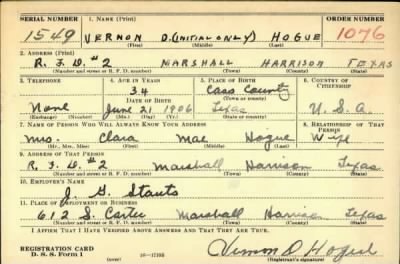 SERIAL NUMBER 1. NAME (Print) ORDER NUMBER
1549 VERNON D.(INITIAL ONLY) HOGUE 1076
(First) (Middle) (Last)
2. ADDRESS (Print)
R.F.D. #2 MARSHALL HARRISON TEXAS
(Number and street or R. F. D. number) (Town) (County) (State)
3. TELEPHONE 4. AGE IN YEARS 5. PLACE OF BIRTH 6. COUNTRY OF CITIZENSHIP
34 Cass County
DATE OF BIRTH (Town or county)
None June 21 1906 Texas U.S.A.
(Exchange) (Number) (Mo.) (Day) (Yr.) (State or country)
7. NAME OF PERSON WHO WILL ALWAYS KNOW YOUR ADDRESS 8. RELATIONSHIP OF THAT PERSON
Mrs. Clara Mae Hogue Wife
(Mr., Mrs., Miss) (First) (Middle) (Last)
9. ADDRESS OF THAT PERSON
R.F.D. #2 Marshall Harrison Texas
(Number and street or R. F. D. number) (Town) (County) (State)
10. EMPLOYER'S NAME
J. G. Stauts
11. PLACE OF EMPLOYMENT OR BUSINESS
612 S. Carter Marshall Harrison Texas
(Number and street or R. F. D. number) (Town) (County) (State)
I AFFIRM THAT I HAVE VERIFIED ABOVE ANSWERS AND THAT THEY ARE TRUE.
REGISTRATION CARD
D. S. S. Form 1 (over) Vernon D Hogue
(Registrant's signature)